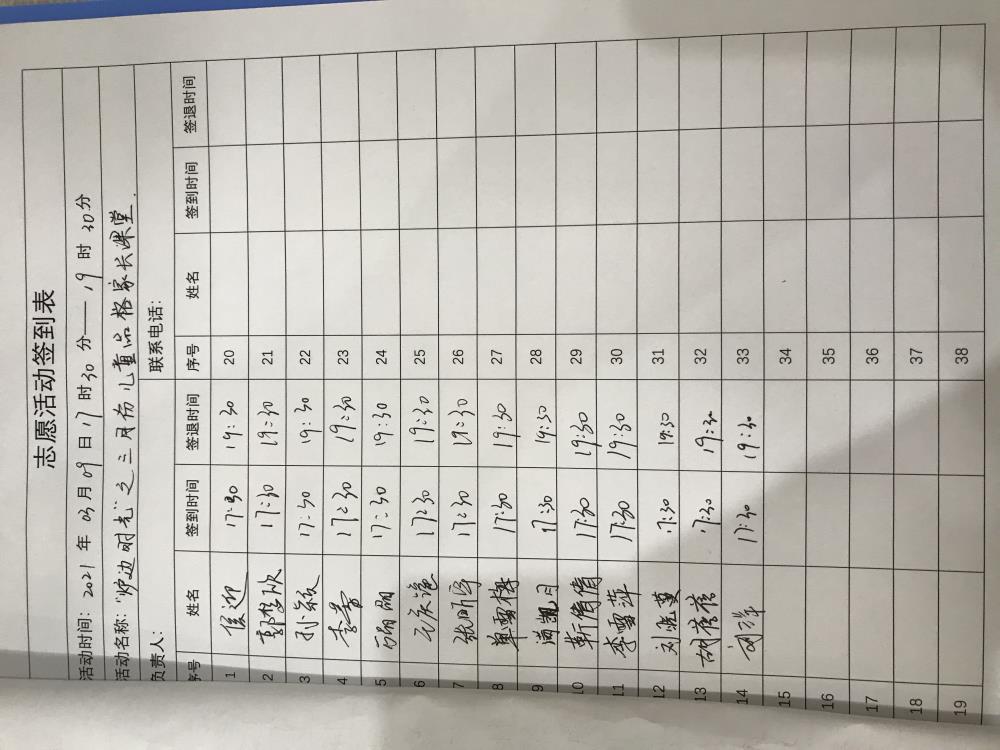 志愿活动签到表
活动时间：2021 年 03 月 09 日 17 时 30 分——19 时 30 分
活动名称："炉边时光"之三月份儿童品格家长课堂.
负责人： 联系电话：
序号 姓名 签到时间 签退时间 序号 姓名 签到时间 签退时间
1 侯迎 17:30 19:30 20
2 郭梦欣 17:30 19:30 21
3 孙颖 17:30 19:30 22
4 李芳 17:30 19:30 23
5 17:30 19:30 24
6 17:30 19:30 25
7 17:30 19:30 26
8 单雪梅 17:30 19:30 27
9 17:30 19:30 28
10 靳倩倩 17:30 19:30 29
11 李雪萍 17:30 19:30 30
12 17:30 19:30 31
13 胡蓓蓓 17:30 19:30 32
14 刘萍 17:30 19:30 33
15 34
16 35
17 36
18 37
19 38